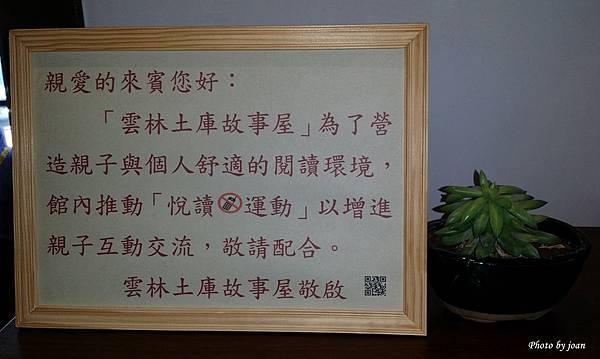 親愛的來賓您好：
「雲林土庫故事屋」為了營
造親子與個人舒適的閱讀環境，
館內推動「悅讀運動」以增進
親子互動交流，敬請配合。
雲林土庫故事屋敬啟
Photo by joan